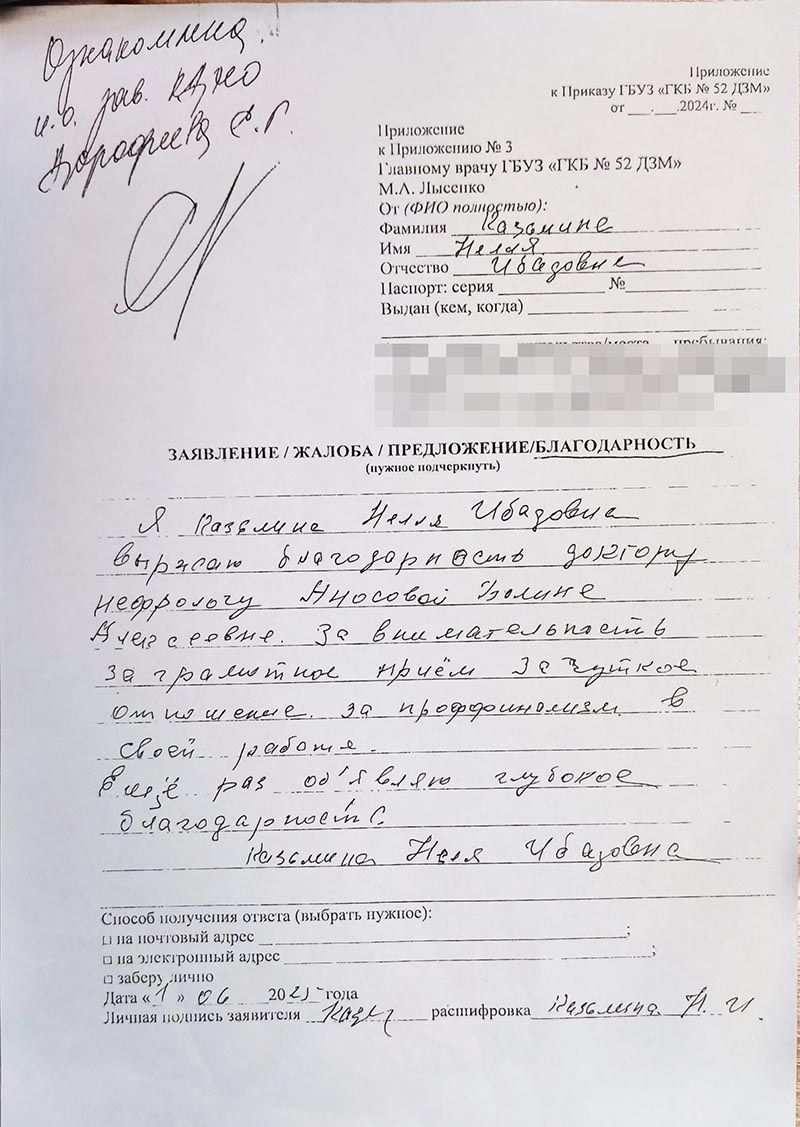 Ознакомлена
и.о. зав. КДНО
Дорофеева С.Г.
Приложение
к Приказу ГБУЗ «ГКБ № 52 ДЗМ»
от ___.___.2024г. № ___
Приложение
к Приложению № 3
Главному врачу ГБУЗ «ГКБ № 52 ДЗМ»
М.А. Лысенко
От (ФИО полностью):
Фамилия Казьмине
Имя Нелля
Отчество Ибадовне
Паспорт: серия ____________ №____________
Выдан (кем, когда) ____________
пребывания:
ЗАЯВЛЕНИЕ / ЖАЛОБА / ПРЕДЛОЖЕНИЕ/БЛАГОДАРНОСТЬ
(нужное подчеркнуть)
Я Казьмина Нелля Ибадовна
выражаю благодарность доктору
нефрологу Аносовой Полине
Алексеевне. За внимательность
за грамотное приём за чуткое
отношение. за проффинализм в
своей работе.
Ещё раз об'являю глубокое
благодарность.
Казьмина Неля Ибадовна
Способ получения ответа (выбрать нужное):
□ на почтовый адрес ____________;
□ на электронный адрес ____________;
□ заберу лично
Дата «1» 06 2025 года
Личная подпись заявителя Казь расшифровка Казьмина Н. И.